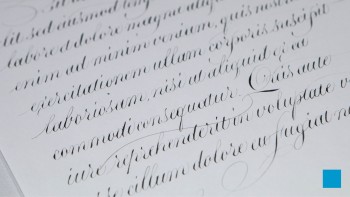 lit sed eiusmod tem
labore et dolore magna aliqu
enim ad minim veniam, quis nos
exercitationem ullam corporis suscipit
laboriosam, nisi ut aliquid ex ea
commodi consequatur. Quis aute
iure reprehenderit in voluptate v
cillum dolore eu fugiat n